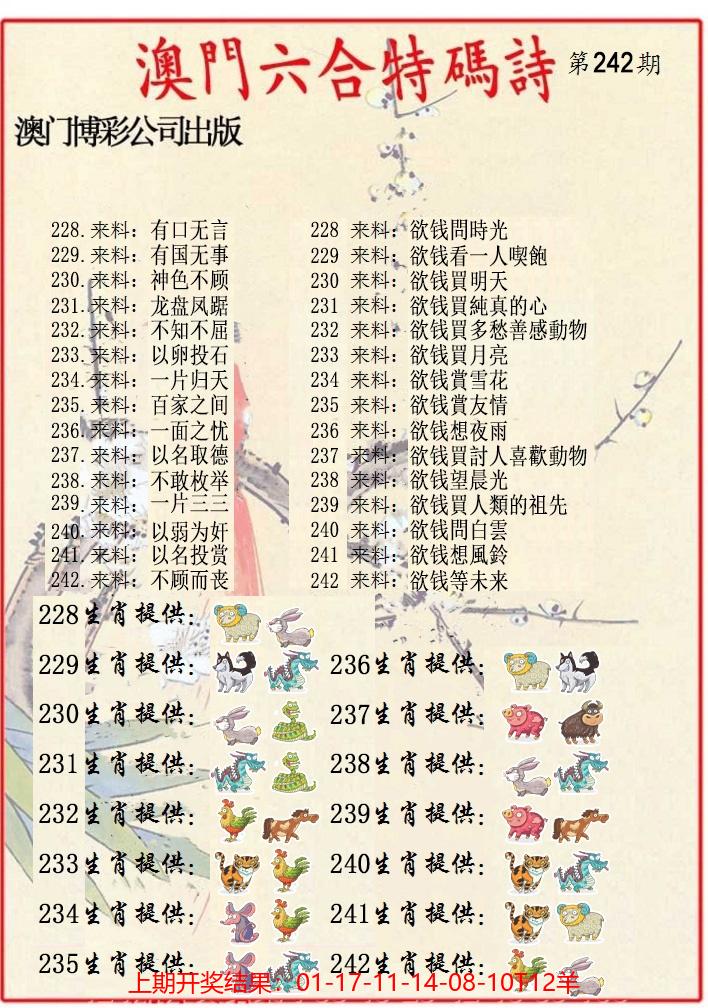 澳門六合特碼詩 第242期
澳门博彩公司出版
228. 来料：有口无言
229. 来料：有国无事
230. 来料：神色不顾
231. 来料：龙盘凤踞
232. 来料：不知不屈
233. 来料：以卵投石
234. 来料：一片归天
235. 来料：百家之间
236. 来料：一面之忧
237. 来料：以名取德
238. 来料：不敢枚举
239. 来料：一片三三
240. 来料：以弱为奸
241. 来料：以名投赏
242. 来料：不顾而丧
228 来料：欲钱問時光
229 来料：欲钱看一人喫飽
230 来料：欲钱買明天
231 来料：欲钱買純真的心
232 来料：欲钱買多愁善感動物
233 来料：欲钱買月亮
234 来料：欲钱賞雪花
235 来料：欲钱賞友情
236 来料：欲钱想夜雨
237 来料：欲钱買討人喜歡動物
238 来料：欲钱望晨光
239 来料：欲钱買人類的祖先
240 来料：欲钱問白雲
241 来料：欲钱想風鈴
242 来料：欲钱等未来
228生肖提供：
229生肖提供：
230生肖提供：
231生肖提供：
232生肖提供：
233生肖提供：
234生肖提供：
235生肖提供：
236生肖提供：
237生肖提供：
238生肖提供：
239生肖提供：
240生肖提供：
241生肖提供：
242生肖提供：
上期开奖结果：01-17-11-14-08-10T12羊